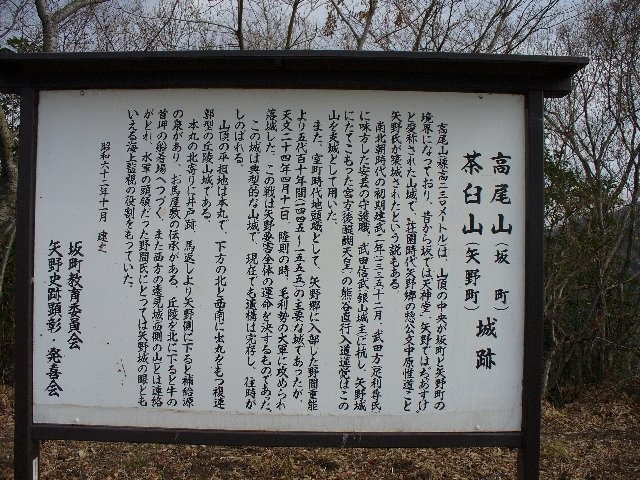 高尾山(坂町)城跡
茶臼山(矢野町)
高尾山標高二三〇メートルは、山頂の中央が坂町と矢野町の
境界になっており、昔から坂では天神堂・矢野では
と愛称された山城で、荘園時代矢野郷の惣公文中原性道こと
矢野氏が築城されたという説もある
南北朝時代の初期建武二年(一三三五)十二月 武田方(足利尊氏
に味方した安芸の守護職、武田信武銀山城主)に抗し、矢野城
にたてこもった宮方(後醍醐天皇)の熊谷直行入道蓮覚はこの
山を支城として用いた。
また、室町時代地頭職として、矢野郷に入部した野間重能
より五代百十年間(一四四五〜一五五五)の主要な城であったが、
天文二十四年四月十一日、隆則の時、毛利勢の大軍に攻められ
落城した。この戦は矢野要害全体の運命を決するものであった。
この城は典型的な山城で、現在でも遺構は完存し、往時が
しのばれる。
山頂の平担地は本丸で、下方の北と西南に出丸をもつ複連
郭型の丘陵山城である。
本丸の北寄りに井戸跡、馬返しより矢野側に下ると補給源
の泉があり、お馬屋敷の伝承がある。丘陵を北に下ると牛の
首岬の船着場へつづく、また西方の遠見城西側の山とは連絡
がとれ、水軍の頭領だった野間氏にとっては矢野城の眼とも
いえる海上監視の役割をもっていた。
昭和六十二年十一月 建之
坂町教育委員会
矢野史跡顕彰・発喜会